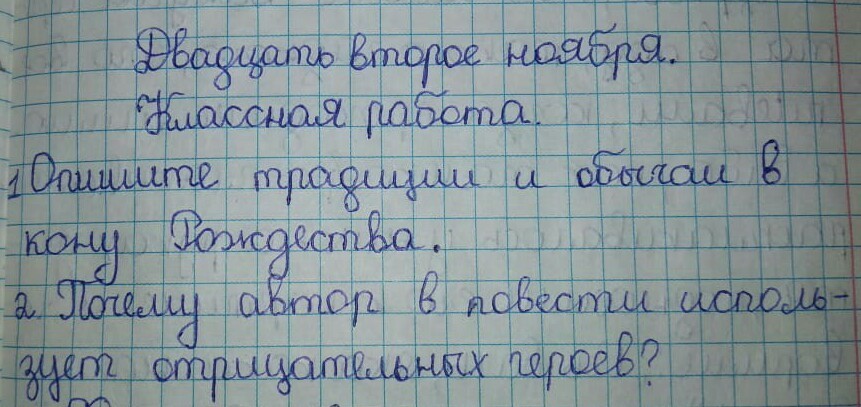 Двадцать второе ноября.
Классная работа.
1 Опишите традиции и обычаи в
кону Рождества.
2. Почему автор в повести исполь-
зует отрицательных героев?